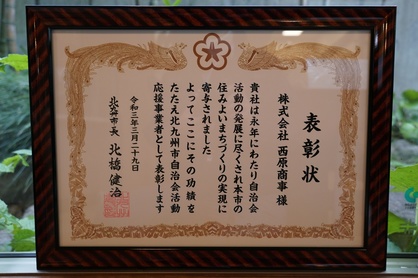 表彰状
株式会社 西原商事 様
貴社は永年にわたり自治会
活動の発展に尽くされ本市の
住みよいまちづくりの実現に
寄与されました
よってここにその功績を
たたえ北九州市自治会活動
応援事業者として表彰します
令和三年三月二十九日
北九州市長 北橋健治